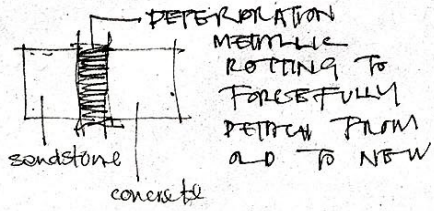 DETERIORATION
METALLIC
ROTTING TO
FORCEFULLY
DETACH FROM
OLD TO NEW
sandstone
concrete